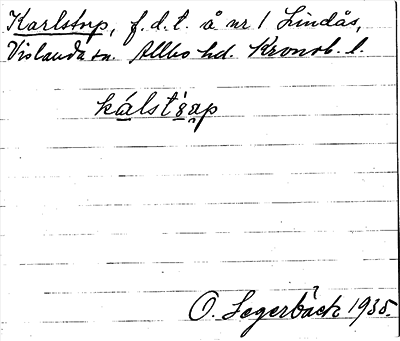 Karlstorp, f.d.t. å nr 1 Lindås,
Vislanda sn. Allbo hd. Kronob. l.
kálstàrp
O. Segerbäck 1935.